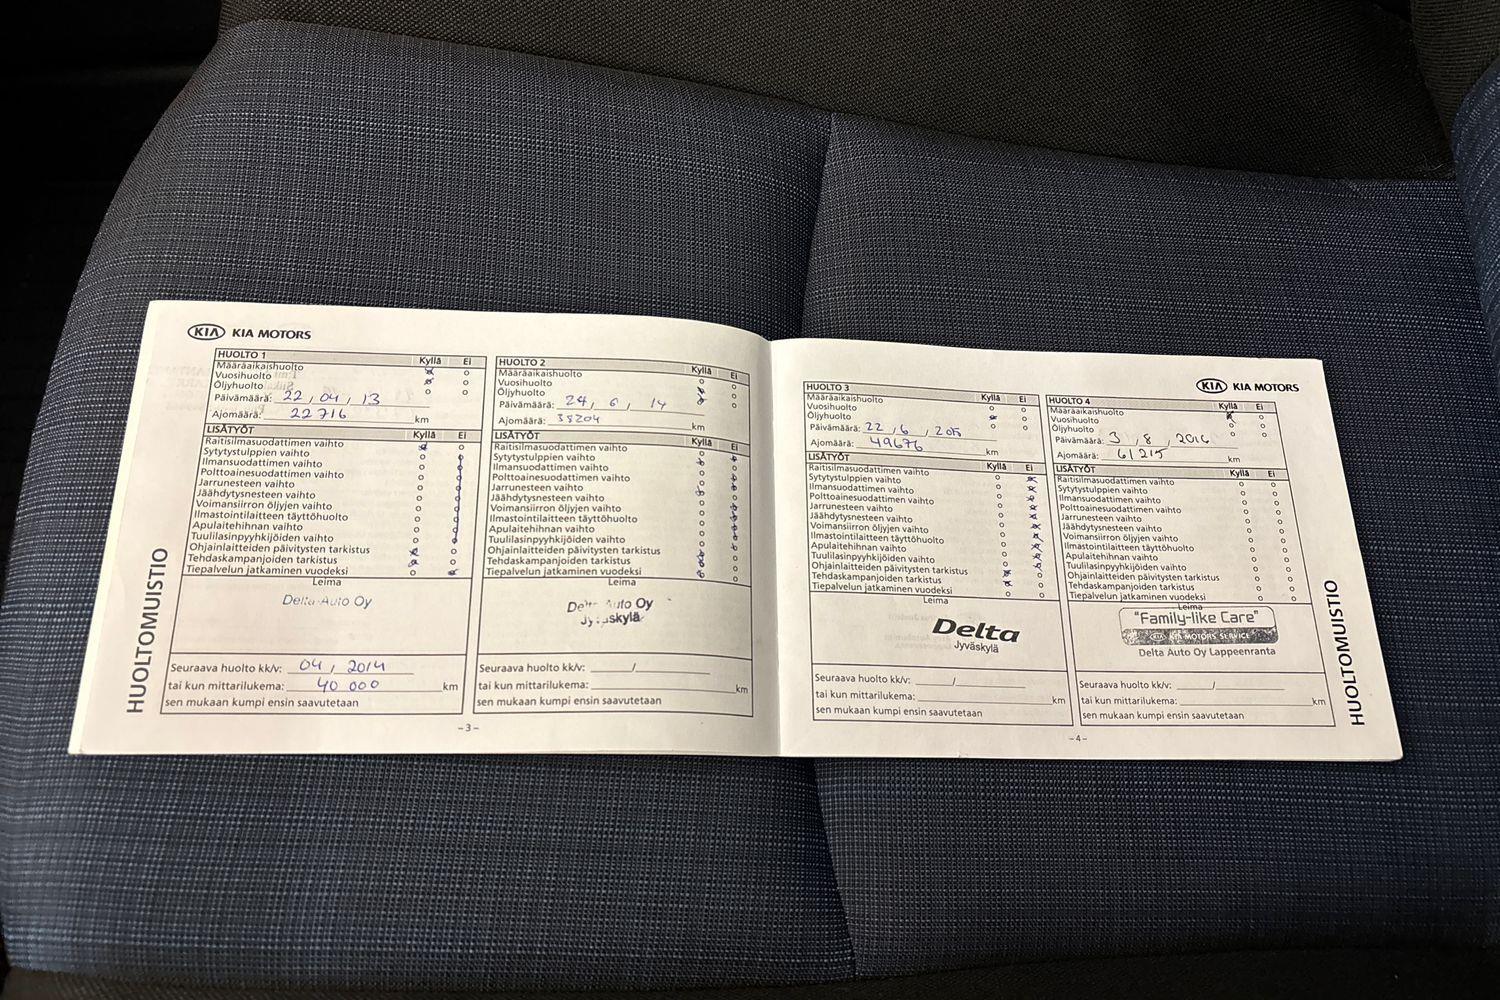 KIA KIA MOTORS
HUOLTO 1 Kyllä Ei
Määräaikaishuolto
Vuosihuolto
Öljyhuolto
Päivämäärä: 22 , 04 , 13
Ajomäärä: 22716 km
LISÄTYÖT Kyllä Ei
Raitisilmasuodattimen vaihto
Sytytystulppien vaihto
Ilmansuodattimen vaihto
Polttoainesuodattimen vaihto
Jarrunesteen vaihto
Jäähdytysnesteen vaihto
Voimansiirron öljyjen vaihto
Ilmastointilaitteen täyttöhuolto
Apulaitehihnan vaihto
Tuulilasinpyyhkijöiden vaihto
Ohjainlaitteiden päivitysten tarkistus
Tehdaskampanjoiden tarkistus
Tiepalvelun jatkaminen vuodeksi
Leima
Delta-Auto Oy
Seuraava huolto kk/v: 04 , 2014
tai kun mittarilukema: 40 000 km
sen mukaan kumpi ensin saavutetaan
HUOLTOMUISTIO
HUOLTO 2 Kyllä Ei
Määräaikaishuolto
Vuosihuolto
Öljyhuolto
Päivämäärä: 24 , 6 , 14
Ajomäärä: 38204 km
LISÄTYÖT Kyllä Ei
Raitisilmasuodattimen vaihto
Sytytystulppien vaihto
Ilmansuodattimen vaihto
Polttoainesuodattimen vaihto
Jarrunesteen vaihto
Jäähdytysnesteen vaihto
Voimansiirron öljyjen vaihto
Ilmastointilaitteen täyttöhuolto
Apulaitehihnan vaihto
Tuulilasinpyyhkijöiden vaihto
Ohjainlaitteiden päivitysten tarkistus
Tehdaskampanjoiden tarkistus
Tiepalvelun jatkaminen vuodeksi
Leima
Auto Oy
Seuraava huolto kk/v: /
tai kun mittarilukema: km
sen mukaan kumpi ensin saavutetaan
-3-
KIA KIA MOTORS
HUOLTO 3 Kyllä Ei
Määräaikaishuolto
Vuosihuolto
Öljyhuolto
Päivämäärä: 22 , 6 ,
Ajomäärä: 49676 km
LISÄTYÖT Kyllä Ei
Raitisilmasuodattimen vaihto
Sytytystulppien vaihto
Ilmansuodattimen vaihto
Polttoainesuodattimen vaihto
Jarrunesteen vaihto
Jäähdytysnesteen vaihto
Voimansiirron öljyjen vaihto
Ilmastointilaitteen täyttöhuolto
Apulaitehihnan vaihto
Tuulilasinpyyhkijöiden vaihto
Ohjainlaitteiden päivitysten tarkistus
Tehdaskampanjoiden tarkistus
Tiepalvelun jatkaminen vuodeksi
Leima
Delta
Jyväskylä
Seuraava huolto kk/v: /
tai kun mittarilukema: km
sen mukaan kumpi ensin saavutetaan
HUOLTO 4 Kyllä Ei
Määräaikaishuolto
Vuosihuolto
Öljyhuolto
Päivämäärä: 3 , 8 , 2016
Ajomäärä: 61215 km
LISÄTYÖT Kyllä Ei
Raitisilmasuodattimen vaihto
Sytytystulppien vaihto
Ilmansuodattimen vaihto
Polttoainesuodattimen vaihto
Jarrunesteen vaihto
Jäähdytysnesteen vaihto
Voimansiirron öljyjen vaihto
Ilmastointilaitteen täyttöhuolto
Apulaitehihnan vaihto
Tuulilasinpyyhkijöiden vaihto
Ohjainlaitteiden päivitysten tarkistus
Tehdaskampanjoiden tarkistus
Tiepalvelun jatkaminen vuodeksi
Leima
"Family-like Care"
KIA MOTORS SERVICE
Delta Auto Oy Lappeenranta
Seuraava huolto kk/v: /
tai kun mittarilukema: km
sen mukaan kumpi ensin saavutetaan
-4-
HUOLTOMUISTIO